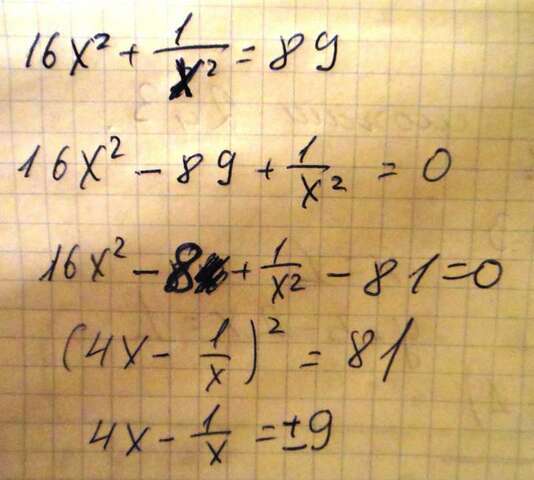 16x² + 1/x² = 89
16x² - 89 + 1/x² = 0
16x² - 8 + 1/x² - 81 = 0
(4x - 1/x)² = 81
4x - 1/x = ±9